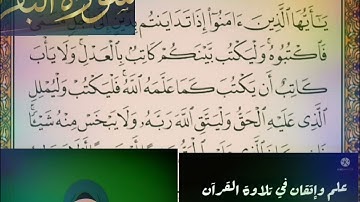 سورة البقرة
يَٰٓأَيُّهَا ٱلَّذِينَ ءَامَنُوٓا۟ إِذَا تَدَايَنتُم بِدَيْنٍ إِلَىٰٓ
فَٱكْتُبُوهُ ۚ وَلْيَكْتُب بَّيْنَكُمْ كَاتِبٌۢ بِٱلْعَدْلِ ۚ وَلَا يَأْبَ
كَاتِبٌ أَن يَكْتُبَ كَمَا عَلَّمَهُ ٱللَّهُ ۚ فَلْيَكْتُبْ وَلْيُمْلِلِ
ٱلَّذِى عَلَيْهِ ٱلْحَقُّ وَلْيَتَّقِ ٱللَّهَ رَبَّهُۥ وَلَا يَبْخَسْ مِنْهُ شَيْـًٔا ۚ
علم وإتقان في تلاوة القرآن